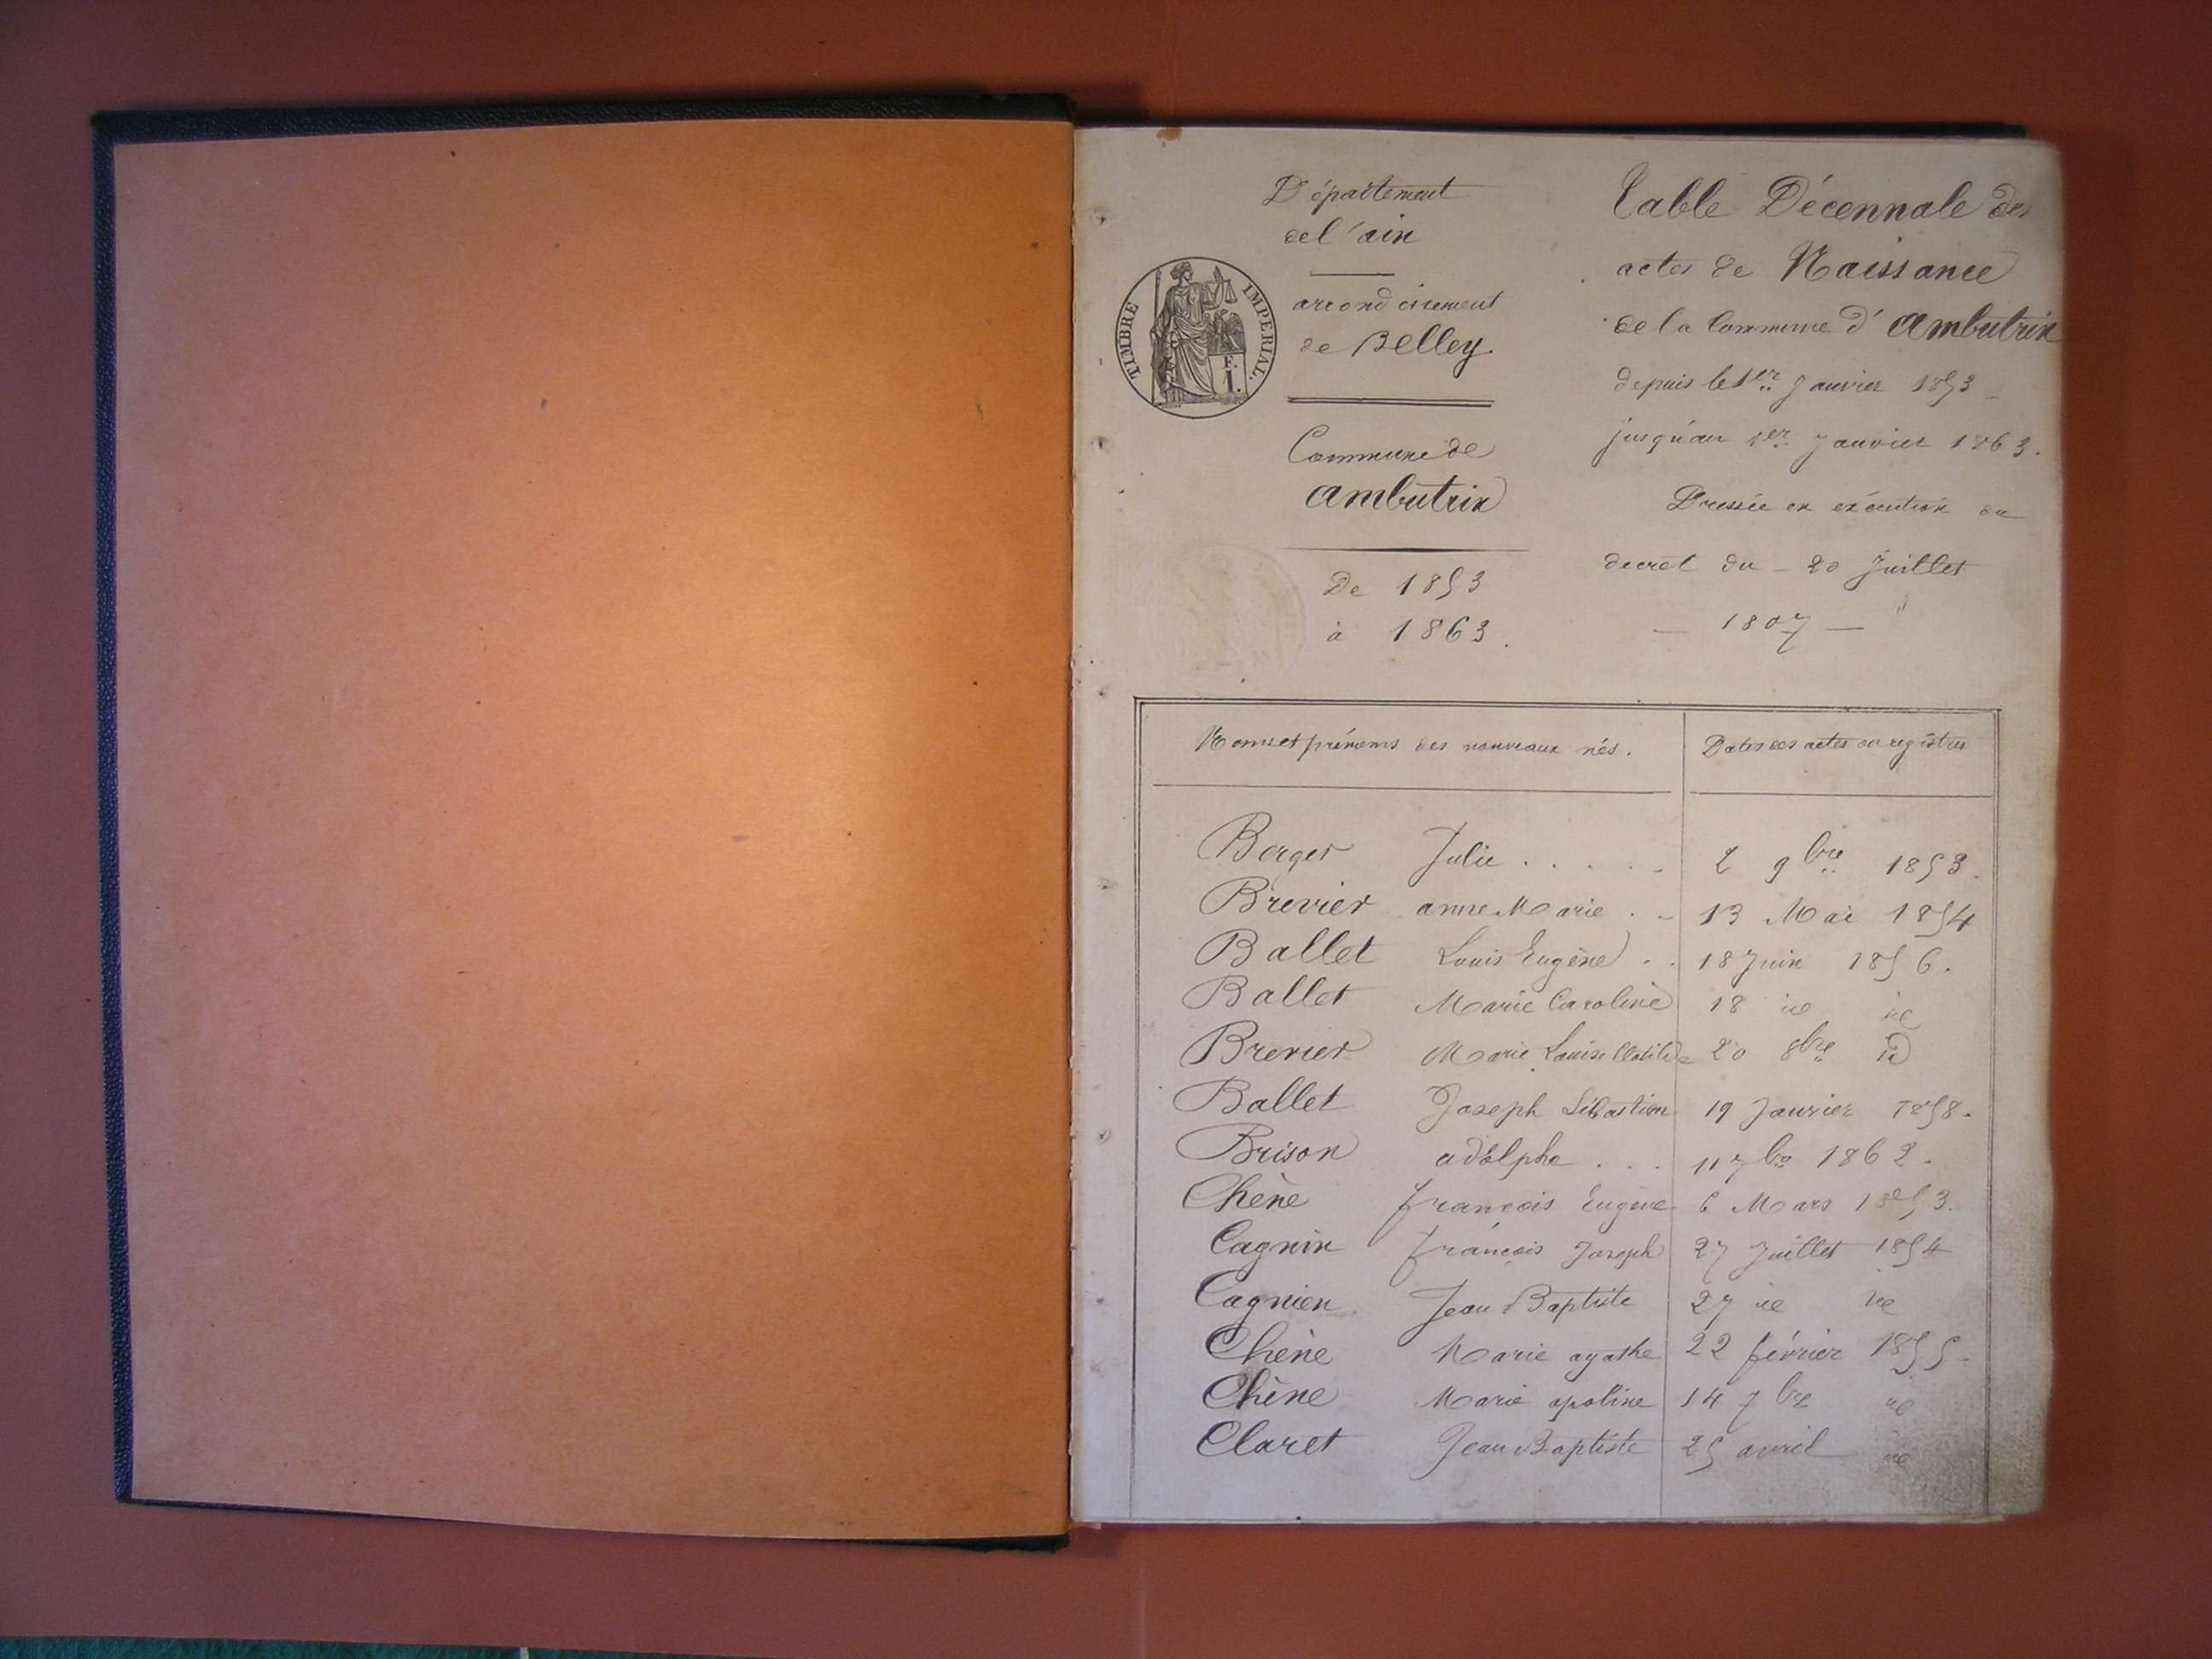 Département
de l'ain
TIMBRE IMPERIAL.
E.
1.
arrondissement
de Belley.
Commune de
ambutrix
De 1853
à 1863.
Table Décennale des
actes de Naissance
de la Commune d'ambutrix
depuis le 1er Janvier 1853
jusqu'au 1er Janvier 1863.
Dressée en exécution du
decret du - 20 Juillet
— 1807 —
Noms et prénoms des nouveaux nés. Dates des actes ou registres
Berger Julie . . . . . 2 9bre 1853.
Brevier anne Marie . . 13 Mai 1854
Ballet Louis Eugène . . 18 Juin 1856.
Ballet Marie Caroline 18 id id
Brevier Marie Louise Clotilde 20 8bre id
Ballet Joseph Sébastien 19 Janvier 1858.
Brison adolphe . . . 11 7bre 1862.
Chêne françois Eugène 6 Mars 1853.
Cagnin françois Joseph 27 Juillet 1854
Cagnien Jean Baptiste 27 id id
Chêne Marie agathe 22 février 1855.
Chêne Marie apoline 14 7bre id
Claret Jean Baptiste 25 avril id